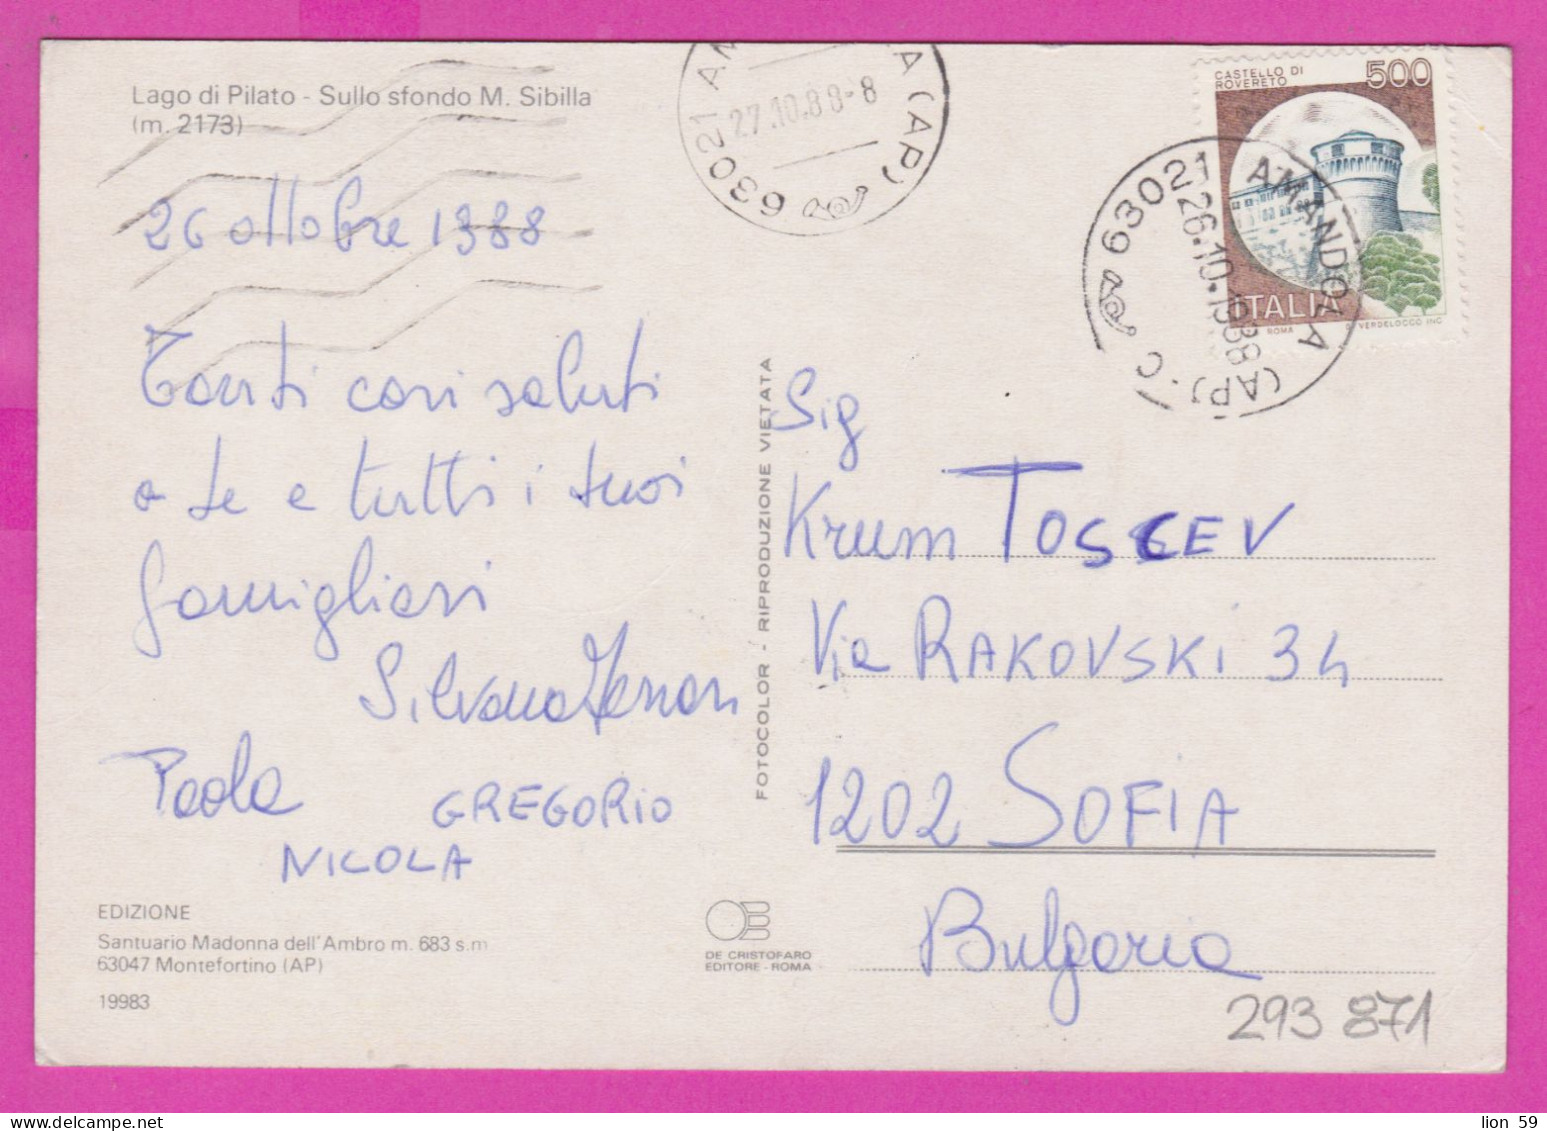 Lago di Pilato - Sullo sfondo M. Sibilla
(m. 2173)
26 ottobre 1988
Tanti cari saluti
a te e tutti i tuoi
famigliari
Silvana
Paola GREGORIO
NICOLA
EDIZIONE
Santuario Madonna dell'Ambro m. 683 s.m
63047 Montefortino (AP)
19983
FOTOCOLOR - RIPRODUZIONE VIETATA
DE CRISTOFARO
EDITORE - ROMA
63021 AM A (AP)
27.10.88-8
CASTELLO DI
ROVERETO
500
ITALIA
ROMA
VERDELOCCO INC
63021 AMANDOLA (AP) . C
26.10.1988
Sig
Krum TOSCEV
Via RAKOVSKI 34
1202 SOFIA
Bulgaria
293 871
lion 59